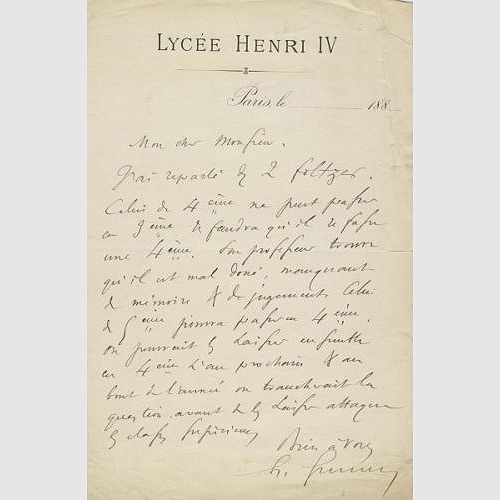 LYCÉE HENRI IV
Paris, le 188
Mon cher Monsieur.
J'ai reparlé des 2 foltzer.
Celui de 4ème ne peut passer
en 3ème. Il faudra qu'il refasse
une 4ème. Son professeur trouve
qu'il est mal doué, manquant
de mémoire & de jugement. Celui
de 5ème pourra passer en 4ème.
On pourrait les laisser ensemble
en 4ème l'an prochain & au
bout de l'année on trancherait la
question avant de les laisser attaquer
les classes supérieures
Bien à vous